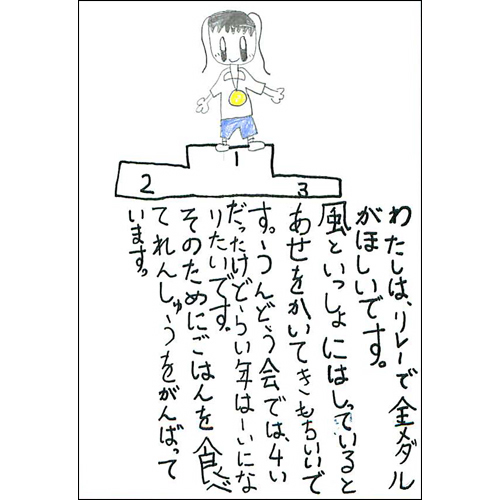 1
2
3
わたしは、リレーで金メダル
がほしいです。
風といっしょにはしっていると
あせをかいてきもちいいで
す。うんどう会では、4い
だったけどらい年は一いにな
りたいです。
そのためにごはんを食べ
てれんしゅうをがんばって
います。